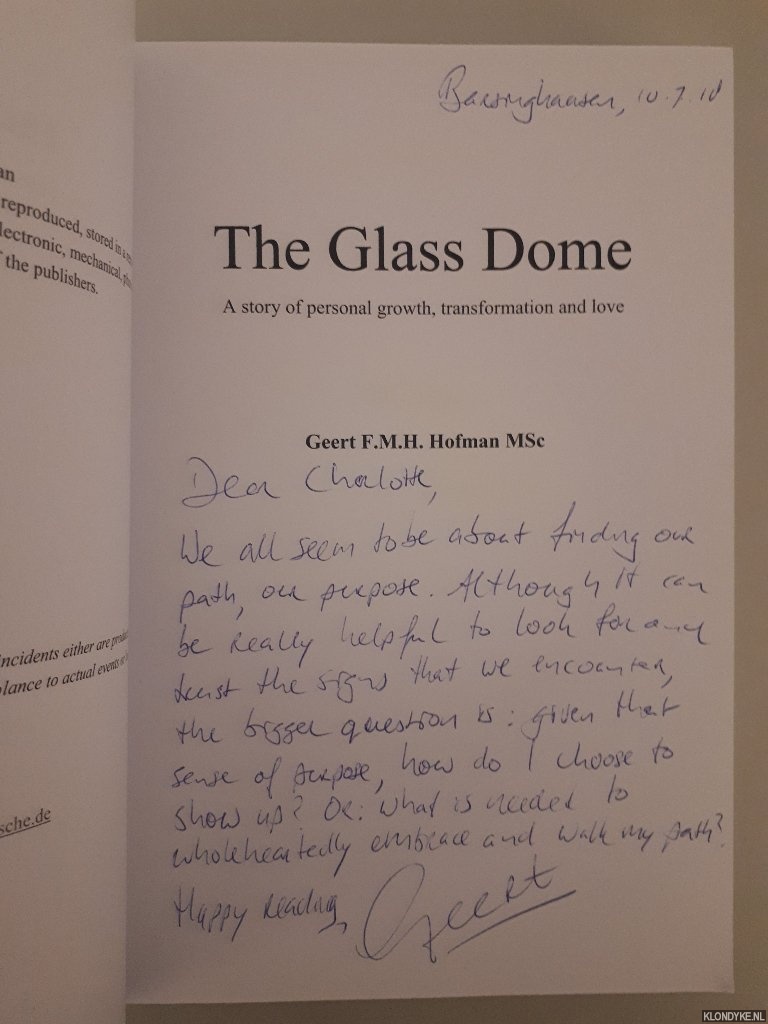 Barsinghausen, 10.7.18
an
reproduced, stored in a
lectronic, mechanical,
f the publishers.
The Glass Dome
A story of personal growth, transformation and love
Geert F.M.H. Hofman MSc
Dear Chalotte,
We all seem to be about finding our
path, our purpose. Although it can
be really helpful to look for and
trust the signs that we encounter,
the bigger question is: given that
sense of purpose, how do I choose to
show up? Or: what is needed to
wholeheartedly embrace and walk my path?
Happy reading,
Geert
incidents either are
lance to actual events
sche.de
KLONDYKE.NL